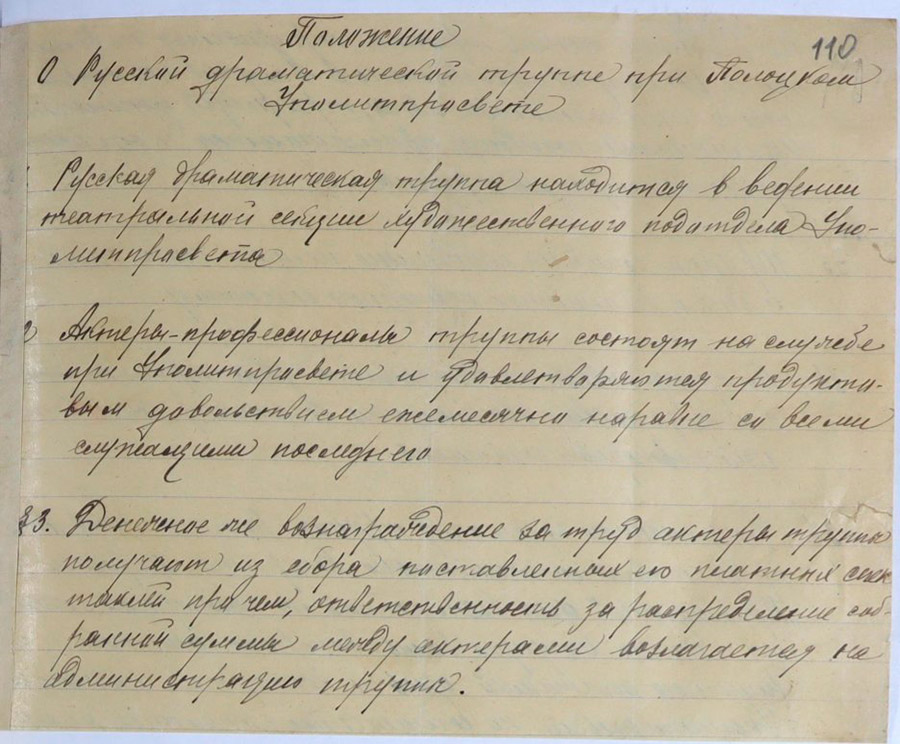 Положение
110
О Русской драматической труппе при Полоцком
Уполитпросвете
Русская драматическая труппа находится в ведении
театральной секции художественного подотдела Упо-
литпросвета
2 Актеры-профессионалы труппы состоят на службе
при Уполитпросвете и удовлетворяются продукто-
вым довольствием ежемесячно наравне со всеми
служащими последнего
§3. Денежное же вознаграждение за труд актеры труппы
получают из сбора поставленных ею платных спек
таклей при чем, ответственность за распределение соб-
ранной суммы между актерами возлагается на
администрацию труппы.